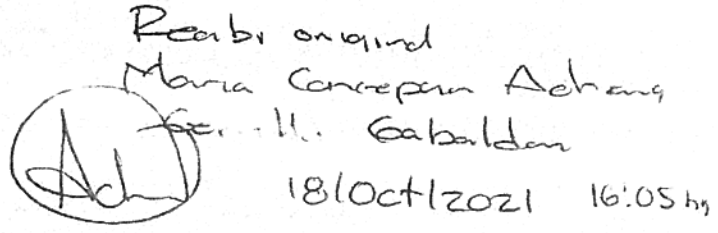 Recibi original
Maria Concepcion
Gabaldon
18/Oct/2021 16:05 hs